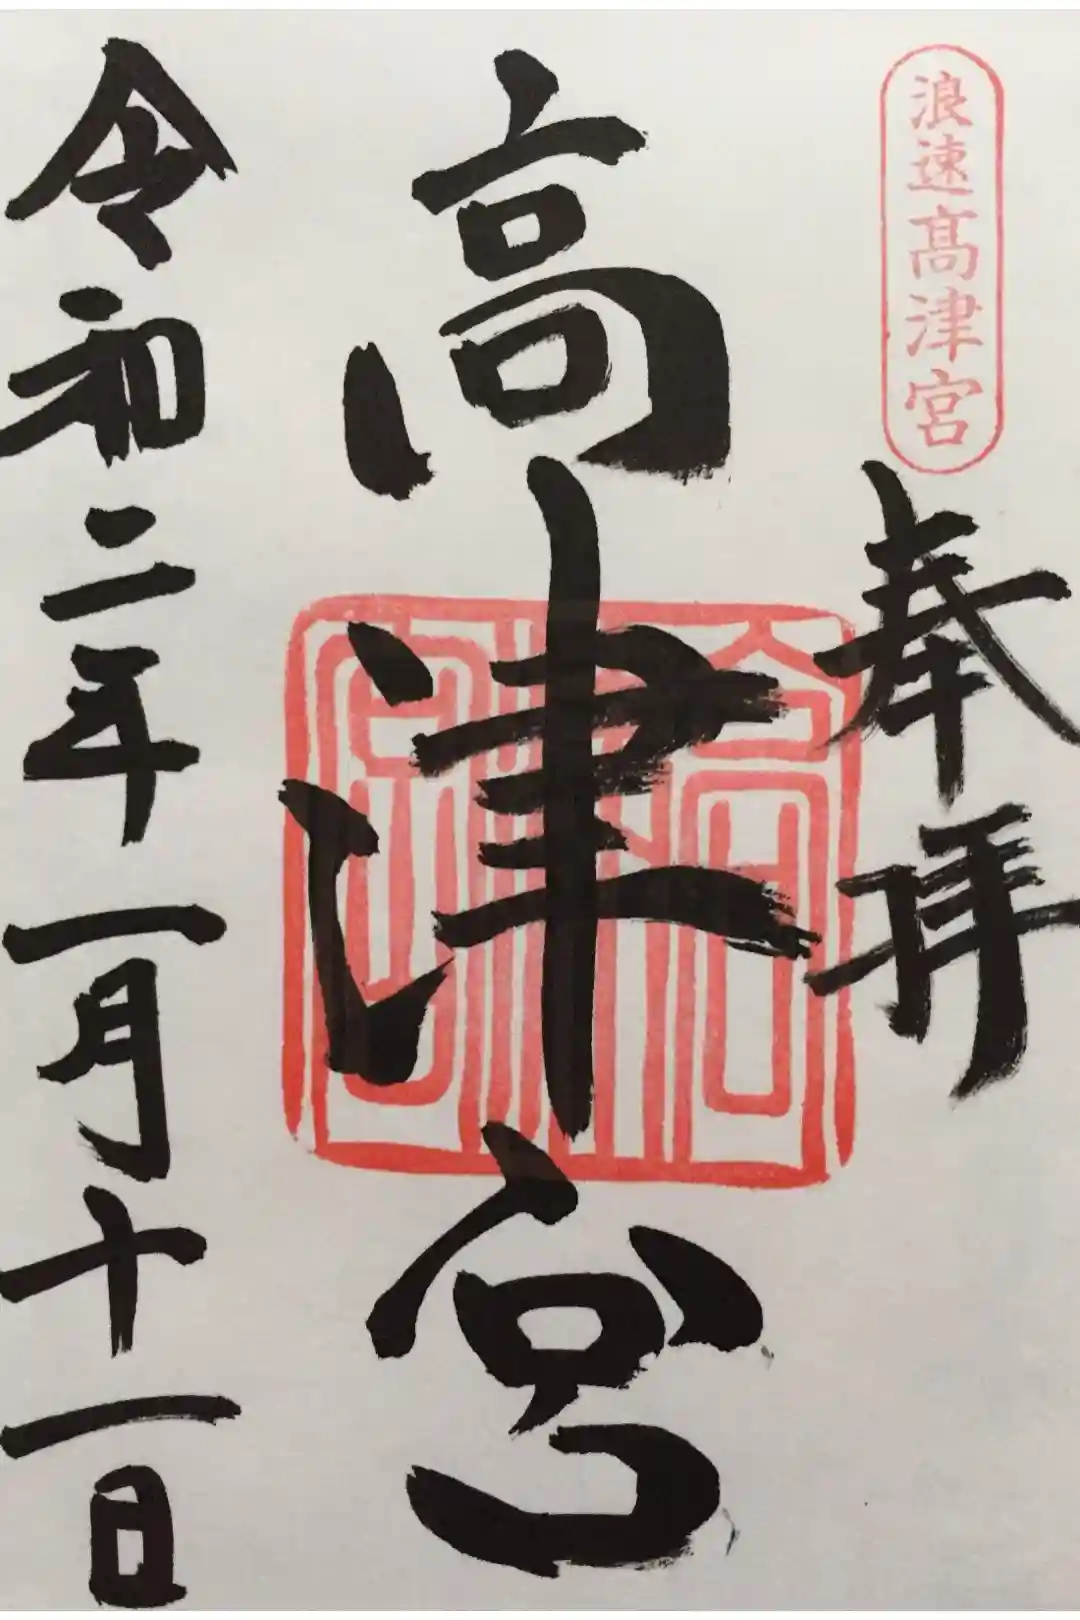 浪速高津宮
奉拝
高津宮
高津宮
令和二年一月十一日